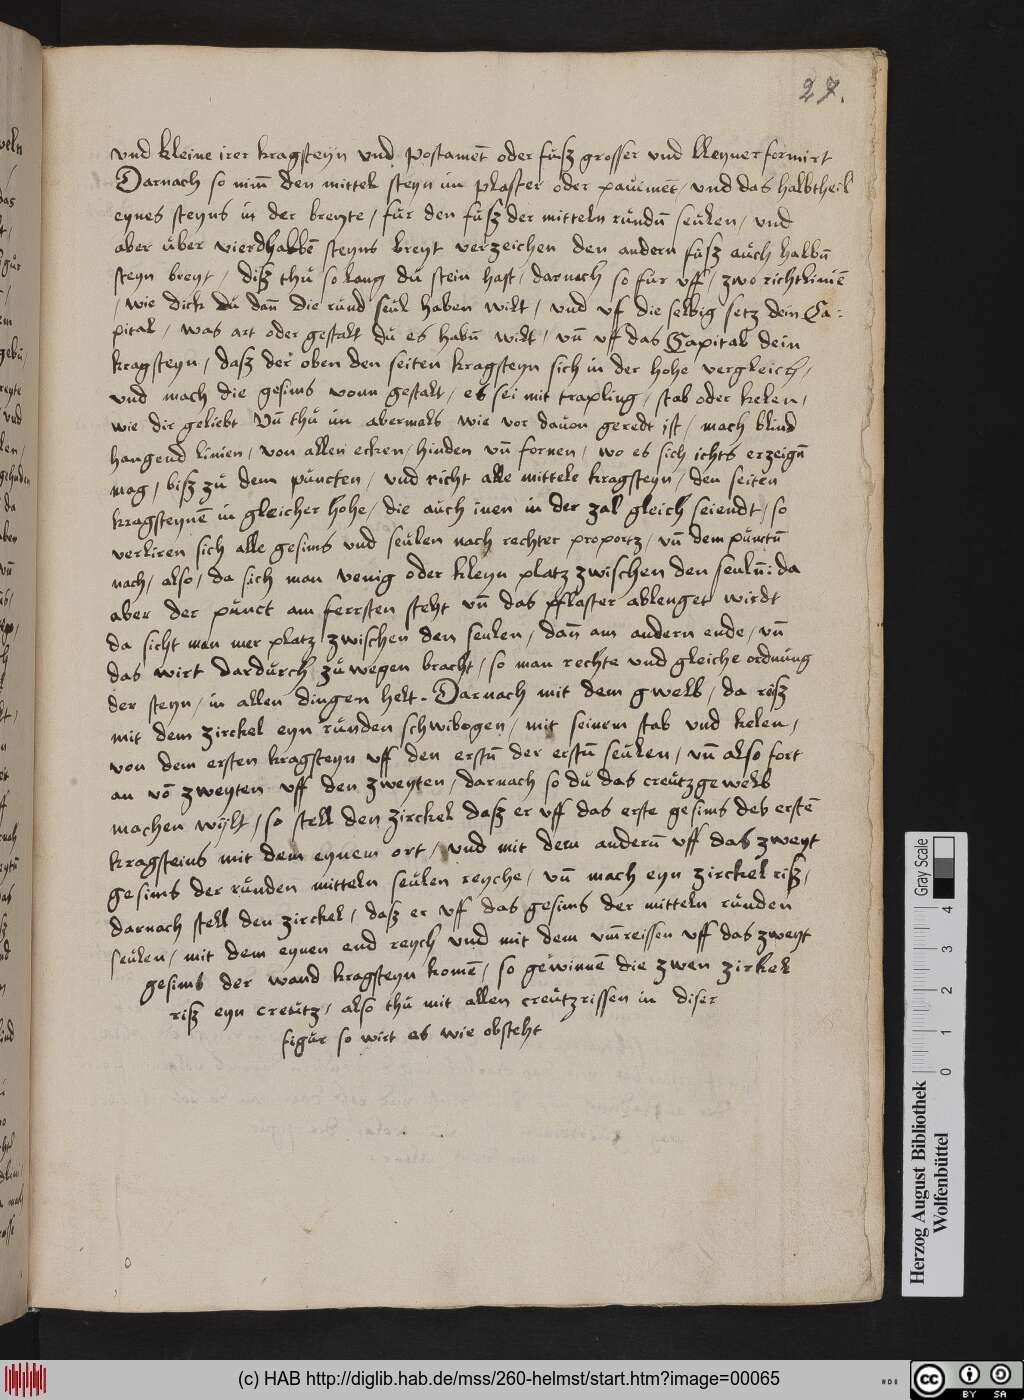 27.
vnd kleine irer kragsteyn vnd postamēt oder fůsz grosser vnd kleyner formirt
Darnach so nim̄ den mittel steyn im plaster oder pauimēt / vnd das halbtheil
eynes steyns in der breyte / fur den fůsz der mitteln růndn̄ seůlen / vnd
aber ůber vierdhalbē steyns breyt verzeichen den andern fůsz aůch halbn̄
steyn breyt / disz thů so lang dů stein hast / darnach so fur vff / zwo richtlinīe
/ wie dick dů dan̄ die růnd seůl haben wilt / vnd vf die selbig setz dein Ca:
pital / was art oder gestalt dů es habn̄ wilt / vn̄ vff das Capital dein
kragsteyn / dasz der oben den seiten kragsteyn sich in der hohe vergleich /
vnd mach die gesims vonn gestalt / es sei mit trapling / stab oder kelen /
wie dir geliebt Vn̄ thů im abermals wie vor dauon geredt ist / mach blind
hangend linien / von allen ecken / hinden vn̄ fornen / wo es sich ichts erzeign̄
mag / bisz zů dem půncten / vnd richt alle mittele kragsteyn / den seiten
kragsteynē in gleicher hohe / die aůch inen in der zal gleich seiendt / so
verliren sich alle gesims vnd seůlen nach rechter proportz / vn̄ dem půnctn̄
nach / also / da sich man venig oder kleyn platz zwischen den seůln̄: da
aber der půnct am ferrsten steht vn̄ das pflaster ablenget wirdt
da sicht man mer platz zwischen den seůlen / dan̄ am andern ende / vn̄
das wirt dardůrch zůwegen bracht / so man rechte vnd gleiche ordnůng
der steyn / in allen dingen helt. Darnach mit dem gwelb / da reisz
mit dem zirckel eyn růnden schwibogen / mit seinem stab vnd kelen /
von dem ersten kragsteyn vff den erstn̄ der erstn̄ seůlen / vn̄ also fort
an vō zweyten vff den zweyten / darnach so dů das creůtzgewelb
machen wylt / so stell den zirckel dasz er vff das erste gesims des erstē
kragsteins mit dem eynem ort / vnd mit dem andern̄ vff das zweyt
gesims der růnden mitteln seůlen reyche / vn̄ mach eyn zirckel risz /
darnach stell den zirckel / dasz er vff das gesims der mitteln růnden
seůlen / mit dem eynen end reych vnd mit dem vm̄reissen vff das zweyt
gesims der wand kragsteyn komē / so gewinnē die zwen zirkel
risz eyn creůtz / also thů mit allen creůtzrissen in diser
figůr so wirt es wie obsteht
Herzog August Bibliothek
Wolfenbüttel
Gray Scale
0 1 2 3 4
(c) HAB http://diglib.hab.de/mss/260-helmst/start.htm?image=00065
cc BY SA